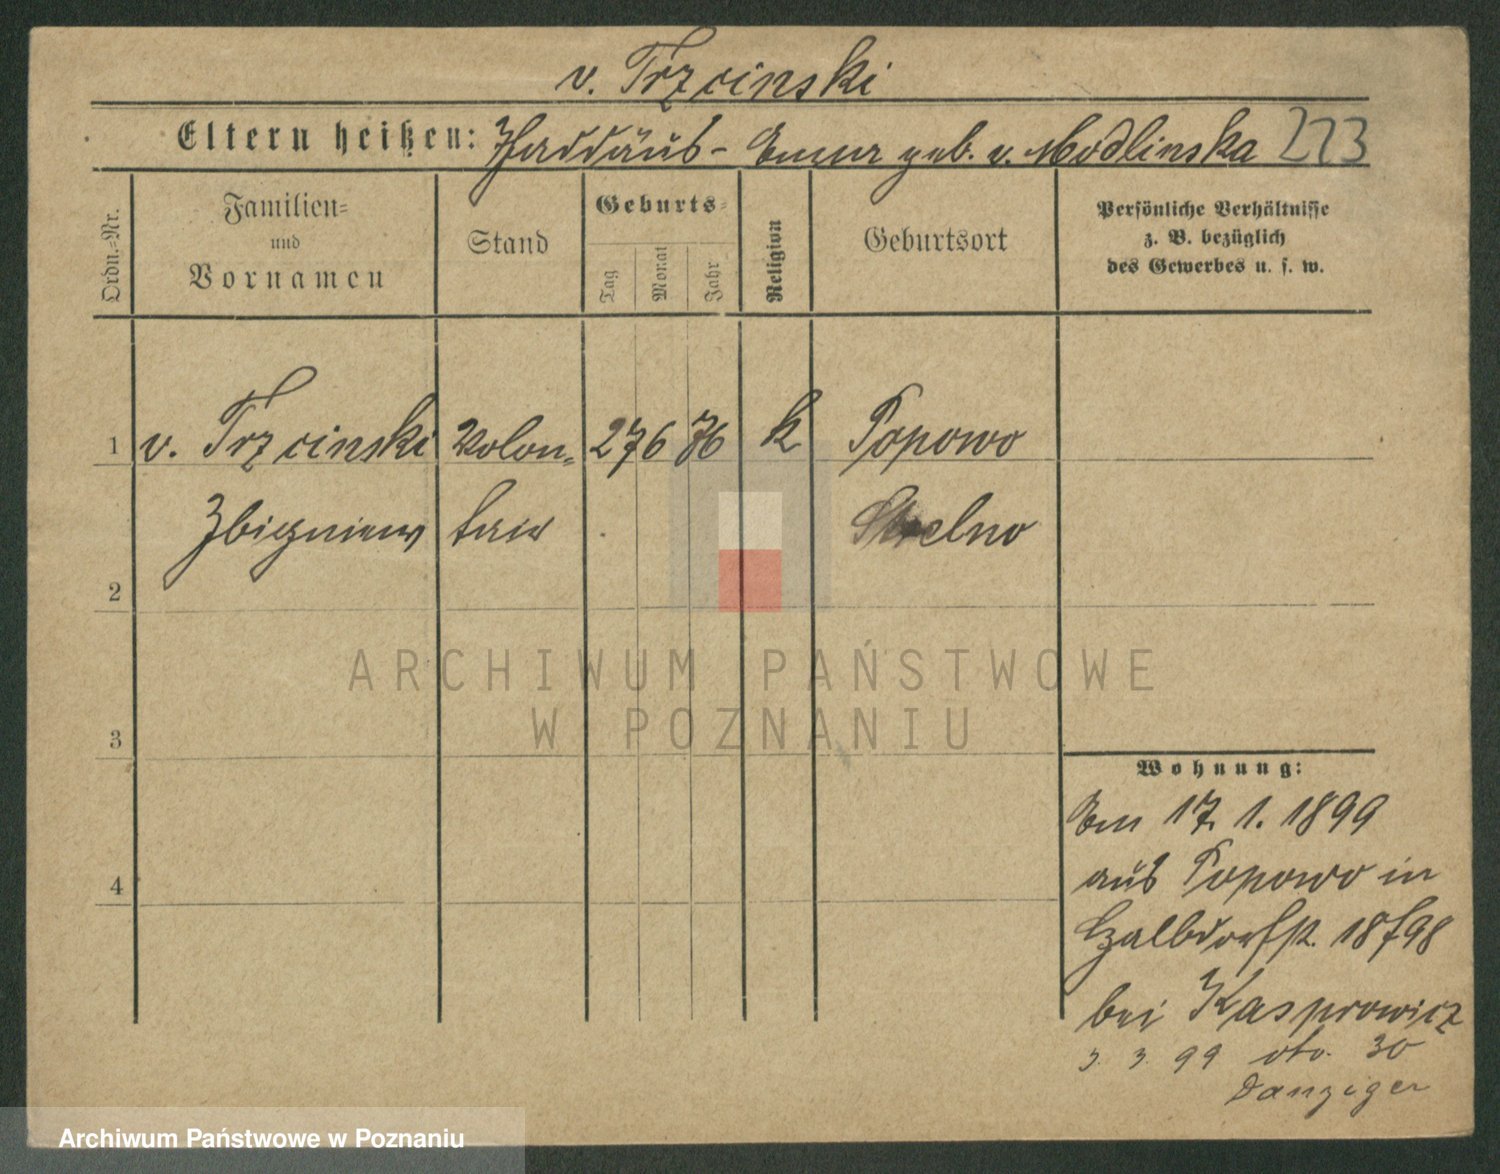 v. Trzcinski
Eltern heißen: Thaddäus - Emma geb. v. Modlinska 273
Ordn.=Nr. Familien= und Vornamen Stand Geburts= Tag Monat Jahr Religion Geburtsort Persönliche Verhältnisse z. B. bezüglich des Gewerbes u. s. w.
1 v. Trzcinski Volon= 27 6 76 k Popowo
Zbigniew tair Strelno
2
ARCHIWUM PAŃSTWOWE
W POZNANIU
3
Wohnung:
Am 17. 1. 1899
4 aus Popowo in
18/98
bei Kasprowicz
3. 3. 99 30
Danziger
Archiwum Państwowe w Poznaniu